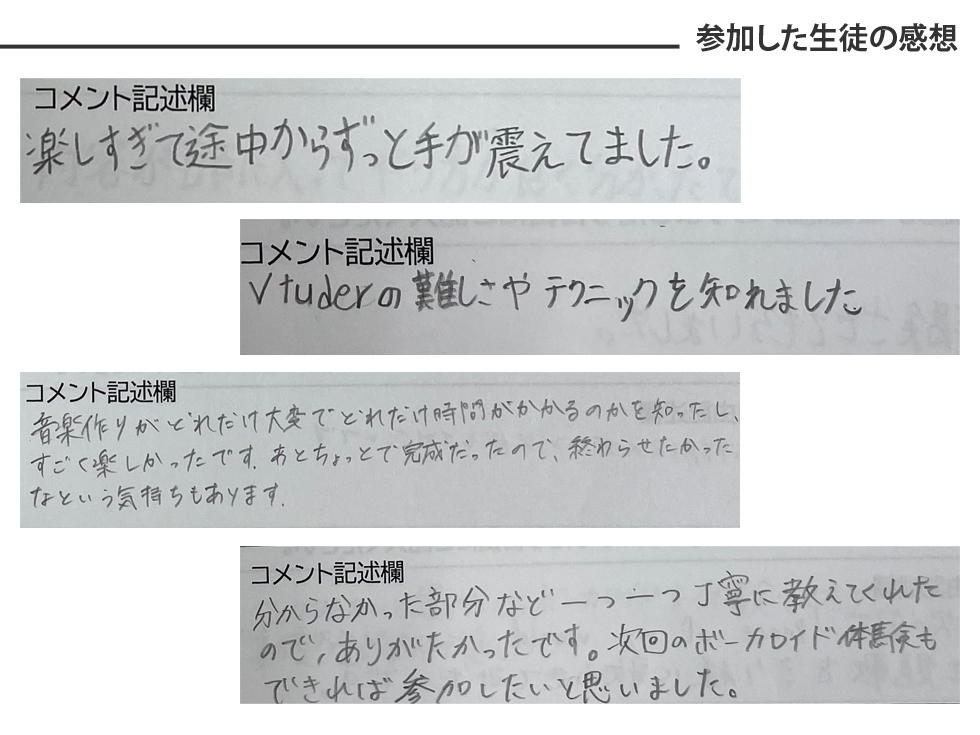 参加した生徒の感想
コメント記述欄
楽しすぎて途中からずっと手が震えてました。
コメント記述欄
Vtuderの難しさやテクニックを知れました
コメント記述欄
音楽作りがどれだけ大変でどれだけ時間がかかるのかを知ったし、
すごく楽しかったです。あとちょっとで完成だったので、終わらせたかった
なという気持ちもあります。
コメント記述欄
分からなかった部分など一つ一つ丁寧に教えてくれた
ので、ありがたかったです。次回のボーカロイド体験も
できれば参加したいと思いました。